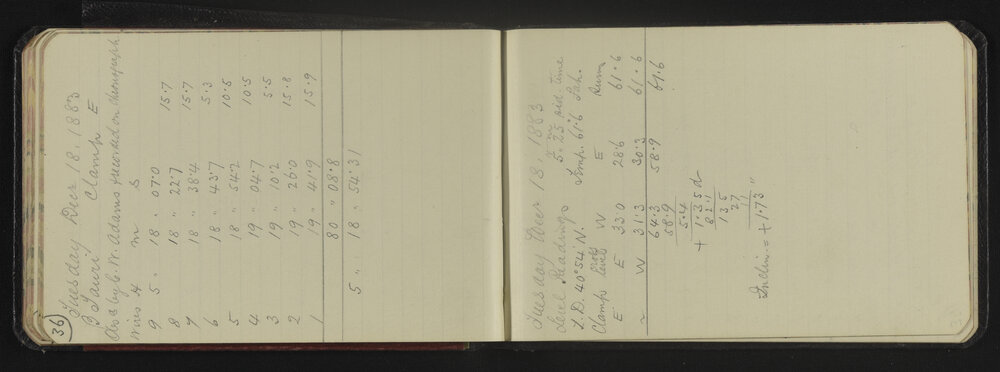 36
Tuesday Decr 18, 1883
β Tauri Clamp E
Obsd by C. W. Adams & recorded on chronograph
Wires H m s
9 5 " 18 " 07.0 15.7
8 18 " 22.7 15.7
7 18 " 38.4 5.3
6 18 " 43.7 10.5
5 18 " 54.2 10.5
4 19 " 04.7 5.5
3 19 " 10.2 15.8
2 19 " 26.0 15.9
1 19 " 41.9
80 " 08.8
5 " 18 " 54.31
Tuesday Decr 18, 1883
Level Readings 5h. 25m sid. time
L.D. 40°54' N. Temp. 61°.6 Fah.
Clamps level W E Sum
E E 33.0 28.6 61.6
~ W 31.3 30.3 61.6
64.3 58.9 61.6
58.9
5.4
+ 1.35 d
82.1
135
27
Inclin = + 1.73"